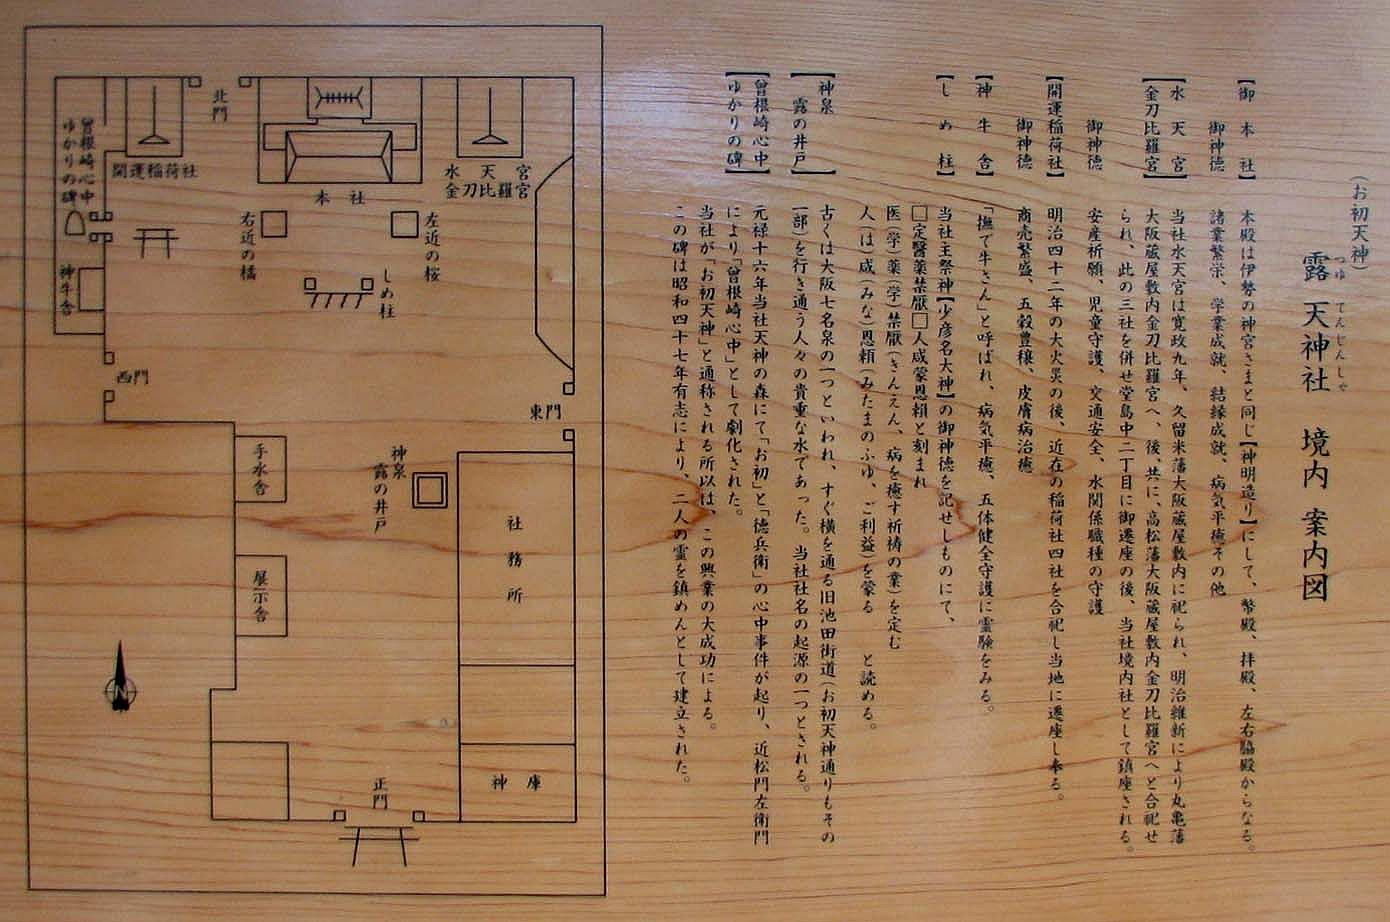 (お初天神)
露 天神社 境内 案内図
つゆ てんじんしゃ
【御本社】 本殿は伊勢の神宮さまと同じ【神明造り】にして、幣殿、拝殿、左右脇殿からなる。
御神徳 諸業繁栄、学業成就、結縁成就、病気平癒その他
【水天宮 当社水天宮は寛政九年、久留米藩大阪蔵屋敷内に祀られ、明治維新により丸亀藩
金刀比羅宮】 大阪蔵屋敷内金刀比羅宮へ、後、共に、高松藩大阪蔵屋敷内金刀比羅宮へと合祀せ
られ、此の三社を併せ堂島中二丁目に御遷座の後、当社境内社として鎮座される。
御神徳 安産祈願、児童守護、交通安全、水関係職種の守護
【開運稲荷社】 明治四十二年の大火災の後、近在の稲荷社四社を合祀し当地に遷座し奉る。
御神徳 商売繁盛、五穀豊穣、皮膚病治癒
【神牛舎】 「撫で牛さん」と呼ばれ、病気平癒、五体健全守護に霊験をみる。
【しめ柱】 当社主祭神【少彦名大神】の御神徳を記せしものにて、
□定醫薬禁厭□人咸蒙恩頼と刻まれ
医(学)薬(学)禁厭(きんえん、病を癒す祈祷の業)を定む
人(は咸(みな)恩頼(みたまのふゆ、ご利益)を蒙る と読める。
【神泉 古くは大阪七名泉の一つといわれ、すぐ横を通る旧池田街道(お初天神通りもその
露の井戸】 一部)を行き通う人々の貴重な水であった。当社社名の起源の一つとされる。
【曾根崎心中 元禄十六年当社天神の森にて「お初」と「徳兵衛」の心中事件が起り、近松門左衛門
ゆかりの碑】 により「曾根崎心中」として劇化された。
当社が「お初天神」と通称される所以は、この興業の大成功による。
この碑は昭和四十七年有志により、二人の霊を鎮めんとして建立された。
北門
曾根崎心中
ゆかりの碑
開運稲荷社
本社
水天宮
金刀比羅宮
右近の橘
左近の桜
しめ柱
神牛舎
西門
東門
手水舎
神泉
露の井戸
社務所
展示舎
N
正門
神庫